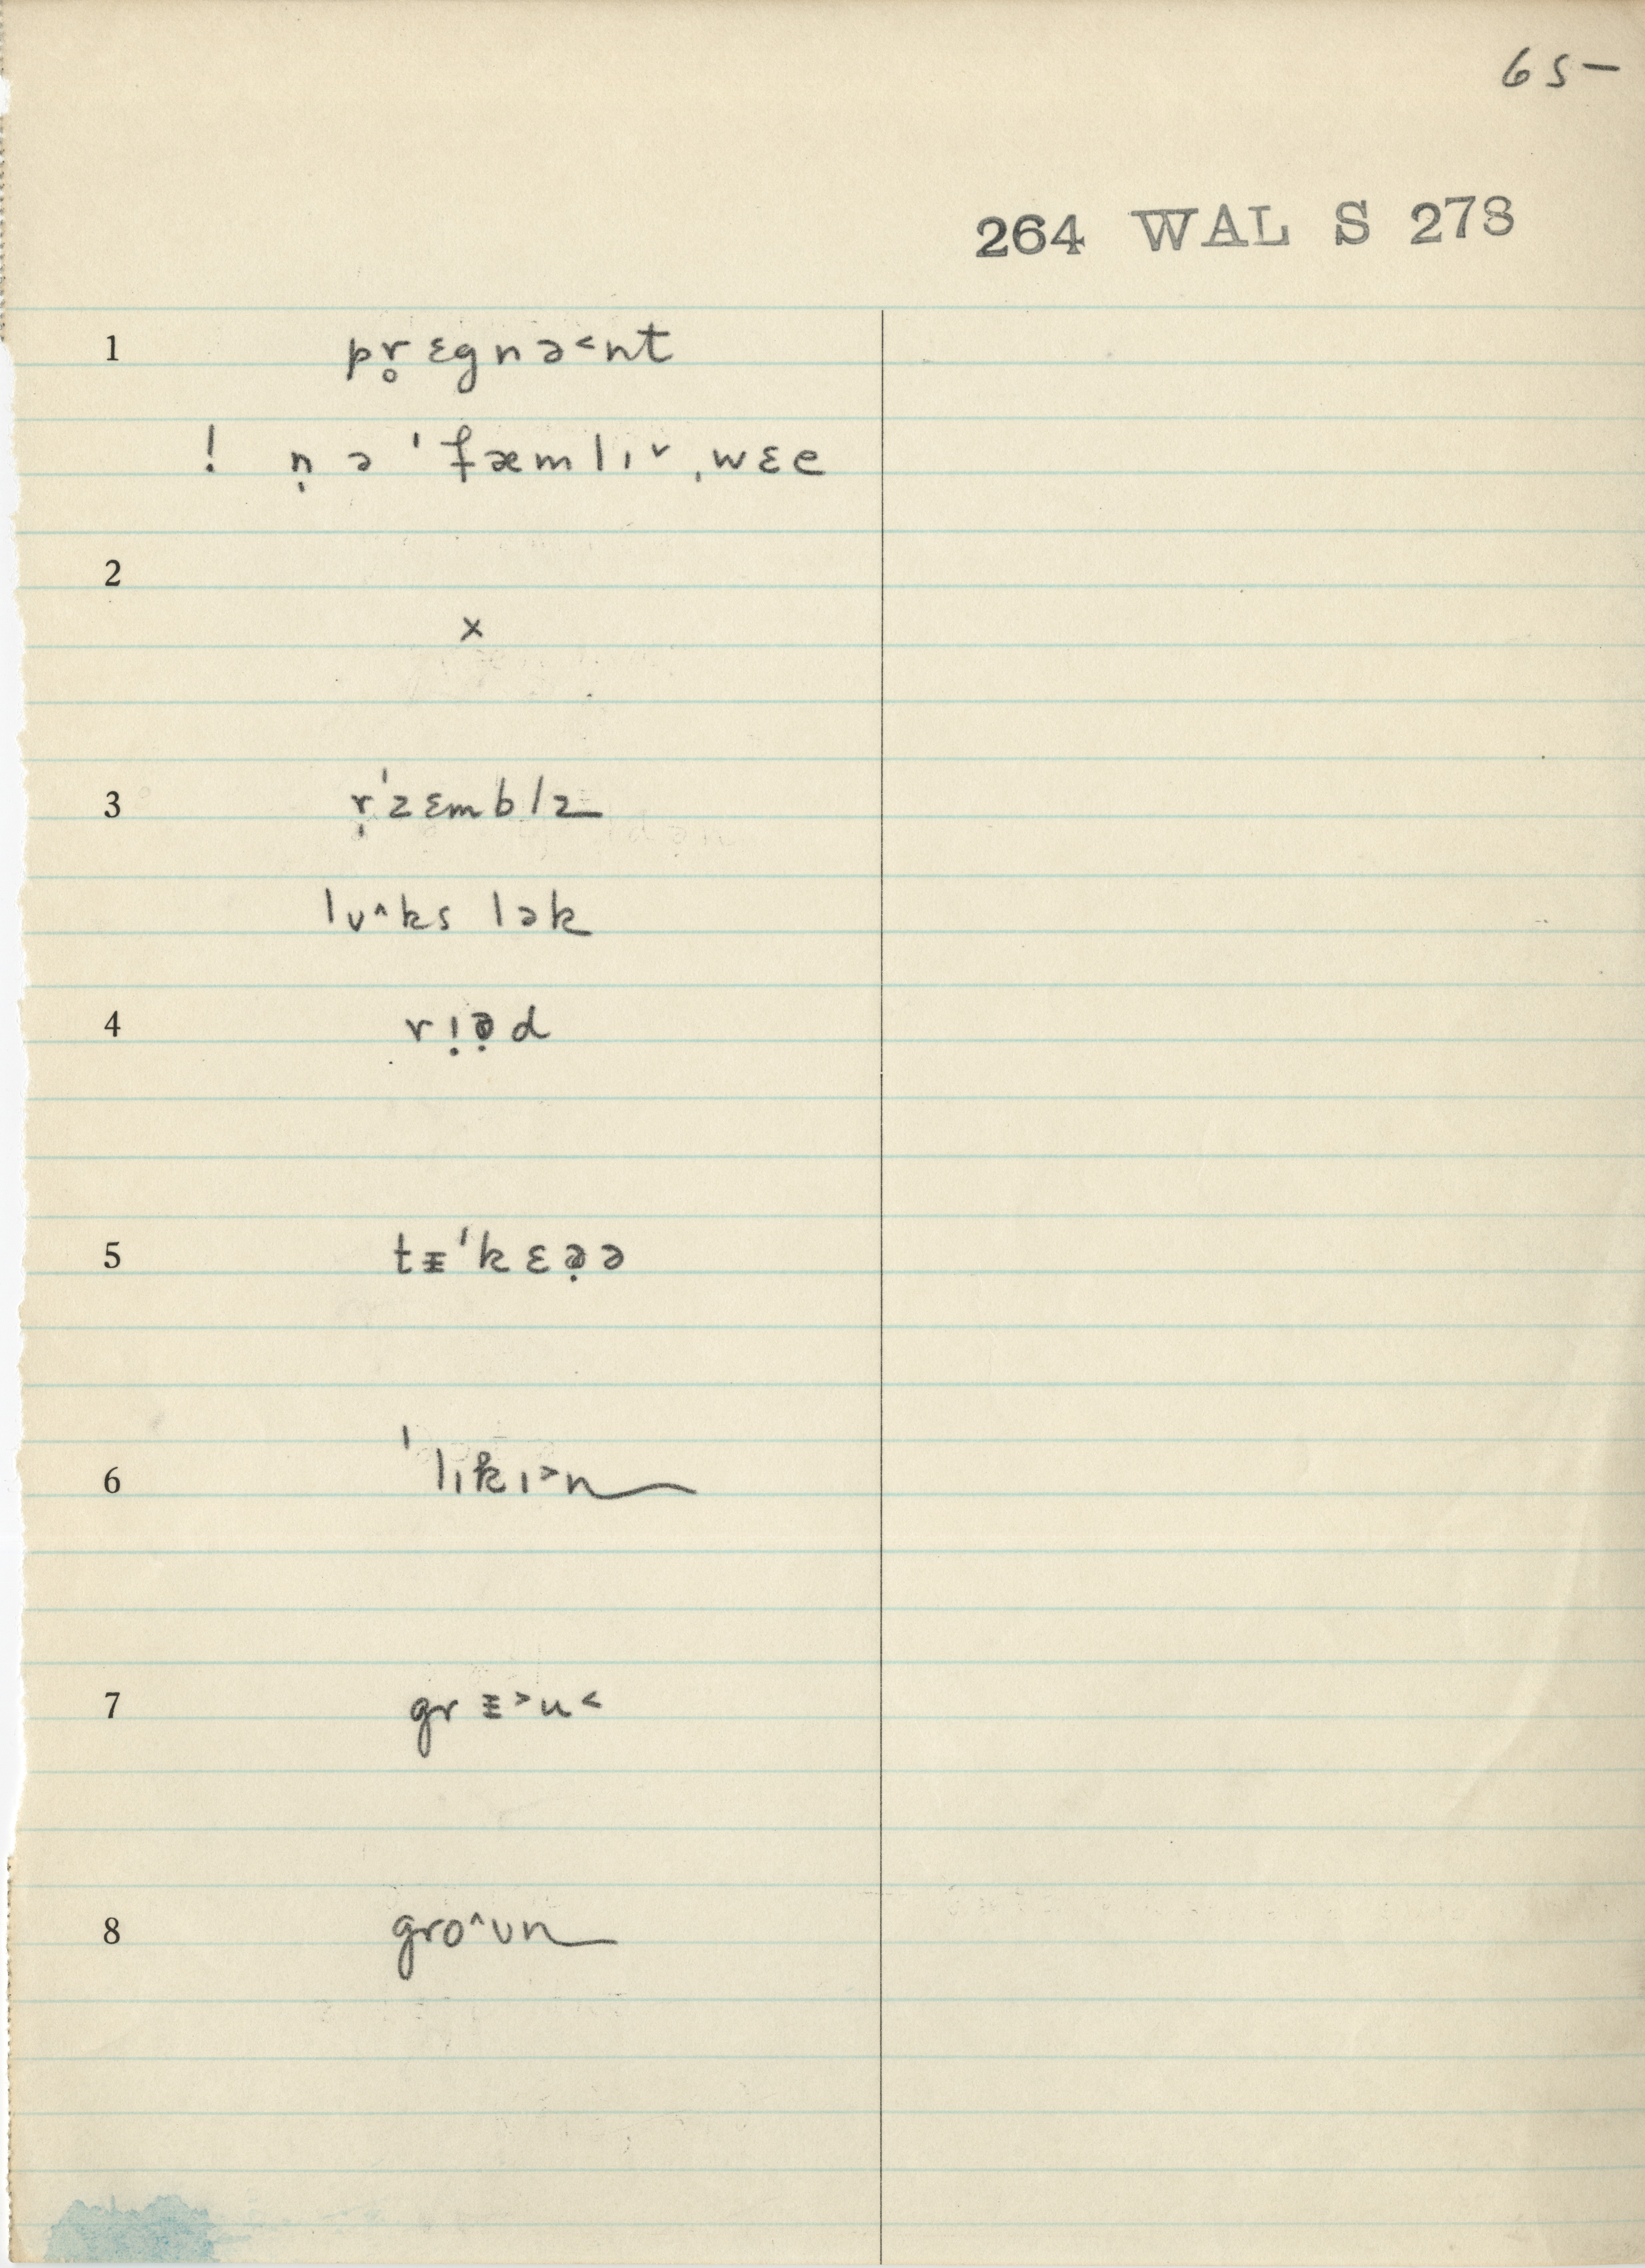 65-
264 WAL S 273
1 pr̥ɛgnə˂nt
! n̩ ə ˈfæmlɪ˅ ˌwɛe
2
x
3 r̩ˈzɛmblz
lʊ^ks lək
4 rɪ̣ə̣d
5 tᵻˈkɛə̣ə
6 ˈlɪkɪ˃n
7 grᵻ˃u˂
8 gro^ʊn